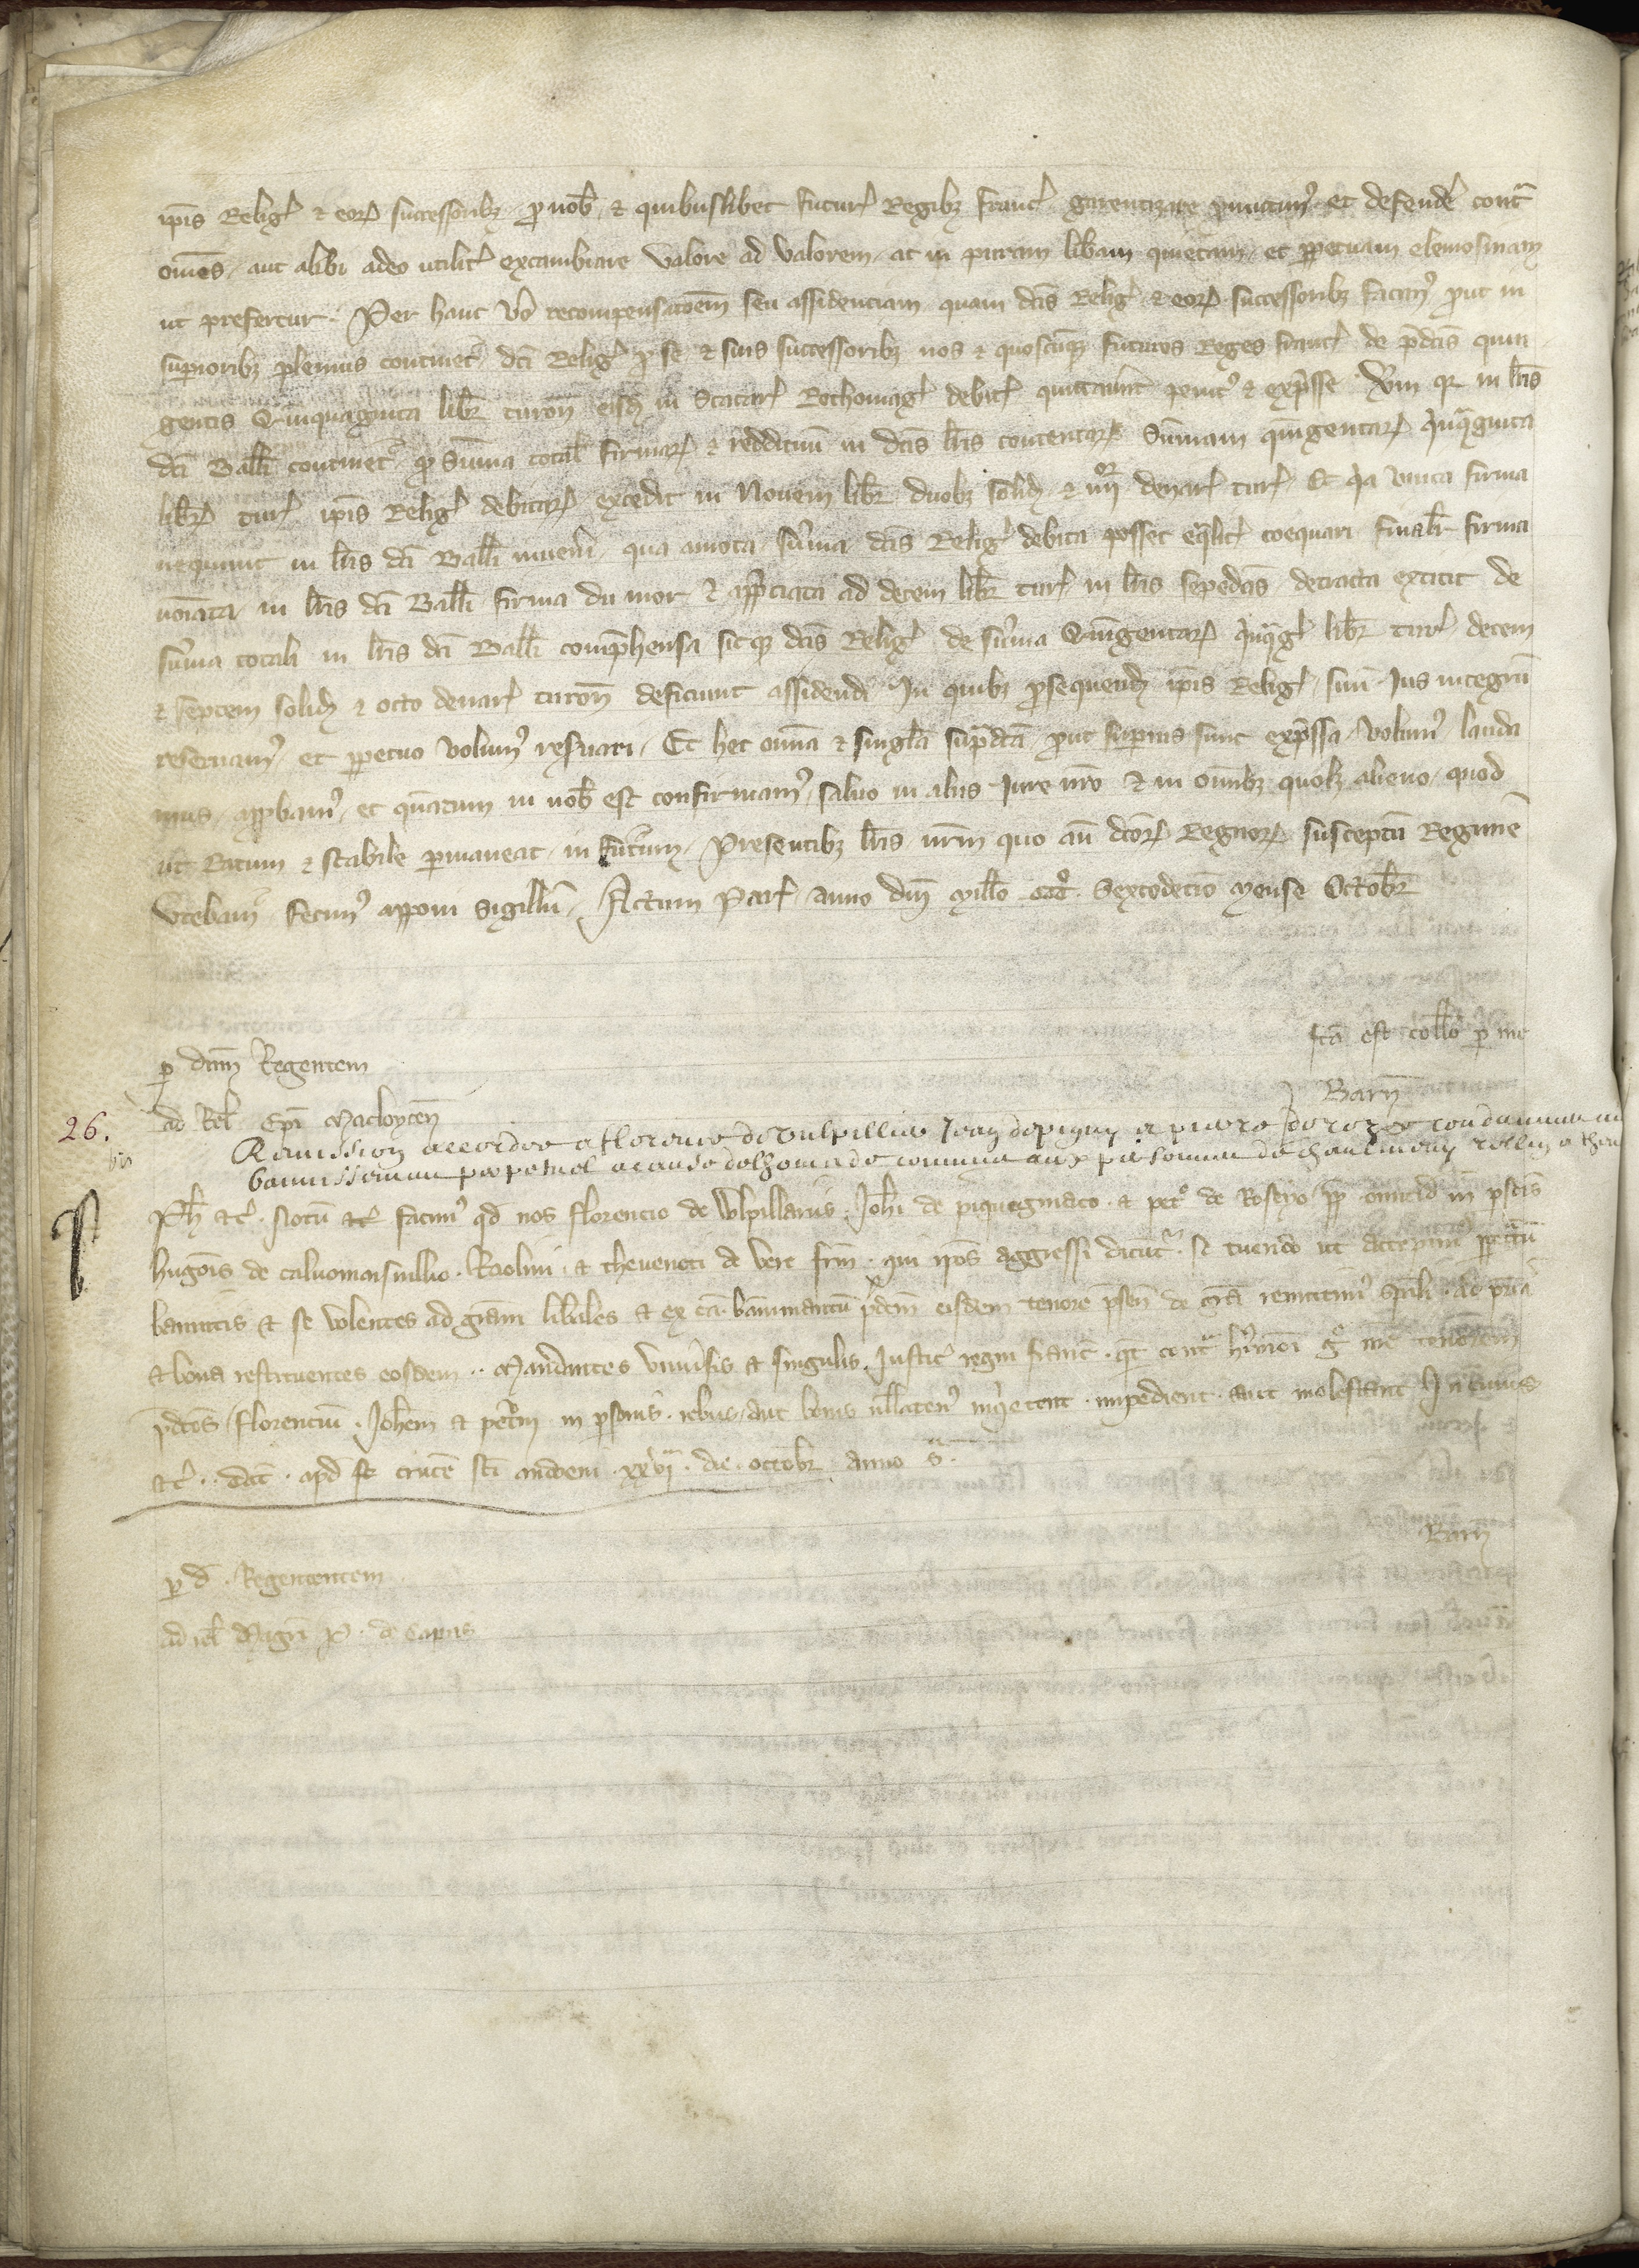 ip̄is Relig᷒ & eoꝝ successoribꝫ ꝓ nob̄ & quibuslibet futuꝝ Regibꝫ Franc᷒ garentizare et defendē contᵃ
om̄es, aut alibi adeo utilit᷒ excambiare valore ad valorem, ac in puram lib̄am quietam, et ꝑpetuam elemosinam
ut prefertur. Per hanc v̊o recompensac̄oem seu assidenciam quam dc̄is Relig᷒ & eoꝝ successoribꝫ facimꝰ ꝓut in
suꝑioribꝫ plenius continet᷒ dc̄i Relig᷒ ꝓ se & suis successoribꝫ nos & quoscūqꝫ futuros Reges Franc᷒ de p̄dc̄is quin
gentis Quinquaginta libr̄ turon̄ eisd̄ in Scacar᷒ Rothomag᷒ debit᷒ quittaver̄t penitꝰ & exp̄sse Vm̄ qꝛ in lr̄is
dc̄i Balli continet᷒ qꝫ Sūma total̄ firmaꝝ & reddituū in dc̄is lr̄is contentaꝝ Sūmam quīgentaꝝ qⁱnqᵃginta
libr̄ tur᷒ ip̄is Relig᷒ debitaꝝ excedit in Novem libr̄ duobꝫ solid̄ & iiijᵒʳ denar᷒ tur᷒ Et qⁱa unica firma
nequiuit in lr̄is dc̄i Balli inveniri, qua amota, sūma dc̄is Relig᷒ debita posset eq̄lit᷒ coequari finalit̄ firma
noīata in lr̄is dc̄i Balli firma du mor & app̄ciata ad decem libr̄ tur᷒ in lr̄is sepedc̄is, detracta extitit de
sūma totali in lr̄is dc̄i Balli comp̄hensa sicqꝫ dc̄is Relig᷒ de sūma Quīgentaꝝ qⁱnqᵃg᷒ libr̄ tur᷒ decem
& septem solid̄ & octo denar᷒ turon̄ deficiunt assidendi In quibꝫ ꝓsequend̄ ip̄is Relig᷒, suū Ius integrū
reservamꝰ, et ꝑpetuo volumꝰ res̄vari, Et hec om̄ia & singl̄a sup̄dc̄a ꝓut suꝑius sunt exp̄ssa, volumꝰ lauda
mus, apꝓbamꝰ, et quātum in nob̄ est confirmamꝰ, salvo in aliis Iure nr̄o & in om̄ibꝫ quolꝫ alieno, quod
ut Ratum & stabile ꝑmaneat in futurum, Presentibꝫ lr̄is nr̄m quo an̄ dc̄oꝝ Regnoꝝ susceptū Regimē
utebamꝰ fecimꝰ apponi Sigillū, Actum Par᷒ anno dn̄i millō cccᵒ. Sextodecīo mense Octobr̄
Ita est coll̄o ꝑ me
ꝑ dn̄m Regentem
Barr̄
ad Rel̄ Ep̄i Maclovien̄
26.
bis
Remission accordee a florence de Vulpilliis Jean depiquigny et pierre de rozeo condamnes au
bannissement perpetuel a cause delhomicide commis aux personnes de chaumeny rollin et thev
Ph̄ et᷒. Notū et᷒ facimꝰ qd̄ nos Florencio de Vulpillariis, Joh̄i de piquigniaco & petᵒ de Roseyo ꝓp̄ omicid̄ in ꝑsōis
hugōis de calvomaisnillio. Raolini & thevenoti de vere fr̄m. qui ip̄os aggressi dicūt᷒. Se tuendo ut accepim̄ ꝑpetratū
bannitis & se volentes ad gr̄am lib̄ales & ex ca bannimentū p̄dc̄m eisdem tenore p̄sen̄ de gr̄a remittimꝰ spāli. ad pr̄ia
& bona restituentes eosdem.. Mandantes univ̄sis & singulis Justic᷒ regni Franc̄. qt̄ contᵃ tenorem
p̄dc̄os Florenciū. Joh̄em & petr̄m in ꝑsonis. rebus, aut bonis ullatenꝰ inqⁱetent. impediant. aut molestant In cuiꝰ
et᷒.. dat̄. apd̄ crucē sc̄i audoeni. xxvjᵃ. die. octobr̄ anno
Barr̄
ꝑ d̄. Regententem
ad rel̄ Magr̄i P. de Capis